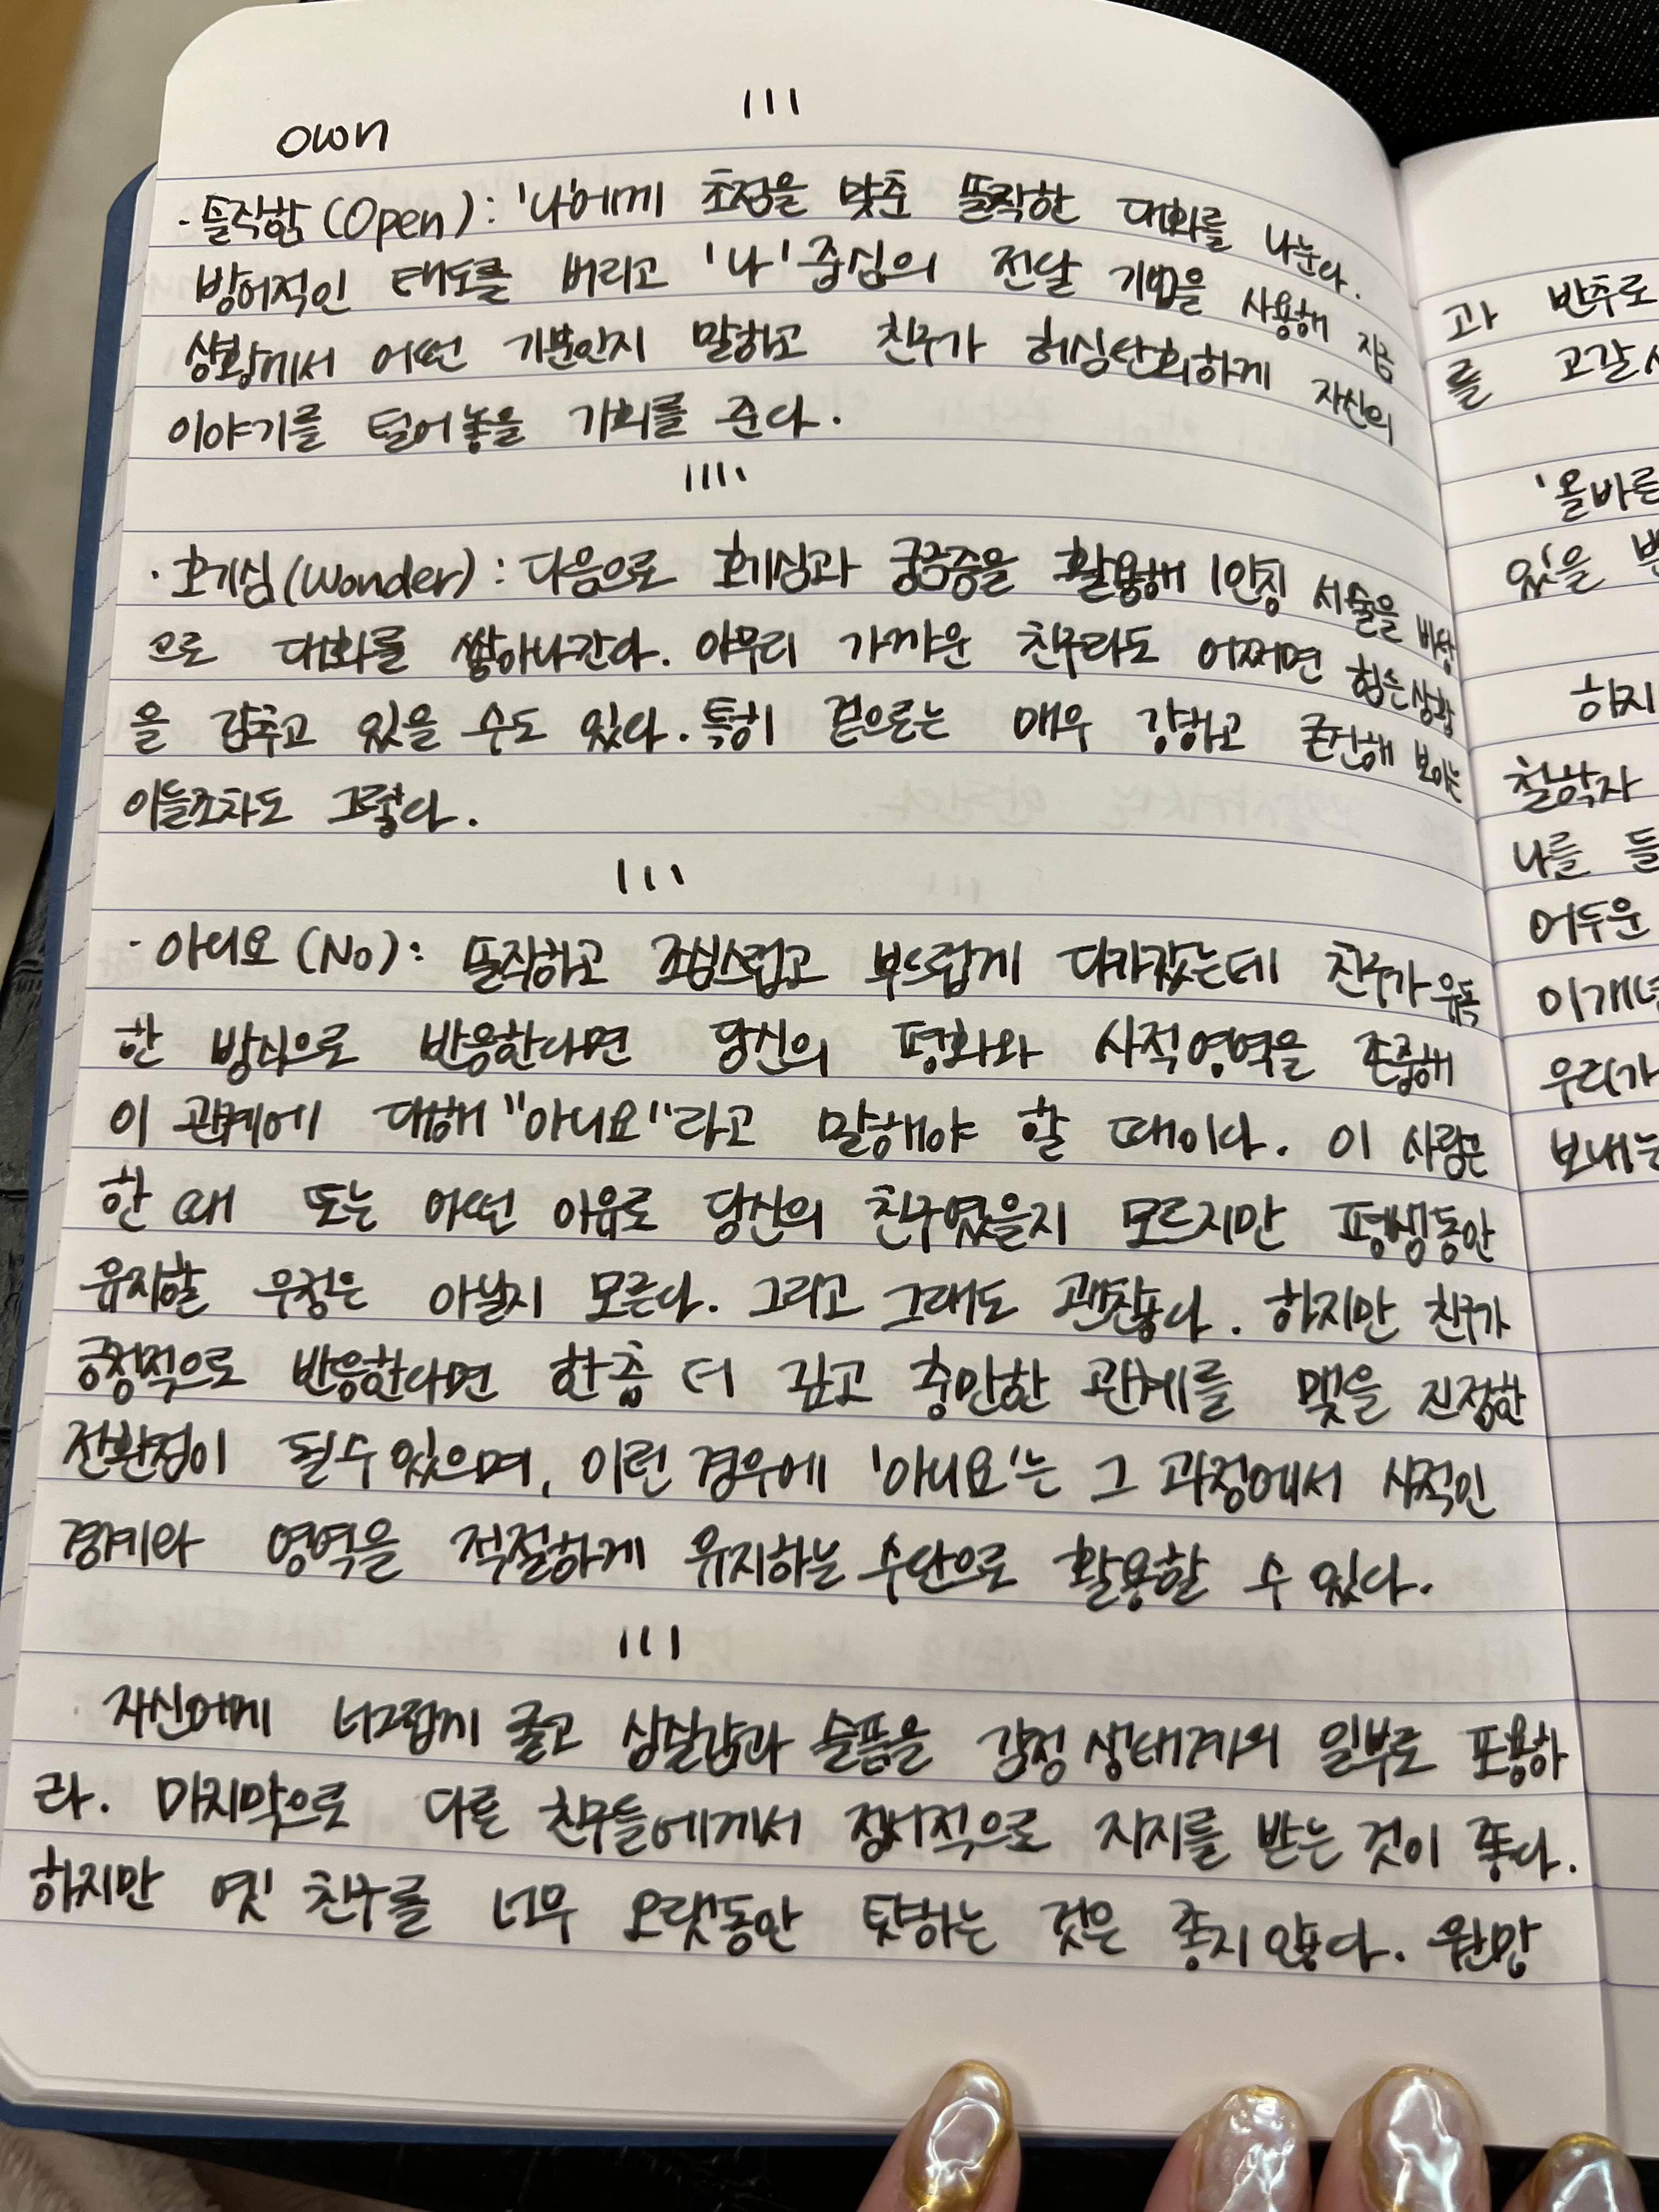 own
111
· 솔직함(Open): '나'에게 초점을 맞춘 솔직한 대화를 나눈다.
방어적인 태도를 버리고 '나' 중심의 전달 기법을 사용해 지금
상황에서 어떤 기분인지 말하고 친구가 허심탄회하게 자신의
이야기를 털어놓을 기회를 준다.
1111
· 호기심(Wonder): 다음으로 호기심과 궁금증을 활용해 1인칭 서술을 바탕
으로 대화를 쌓아나간다. 아무리 가까운 친구라도 어쩌면 힘든상황
을 감추고 있을 수도 있다. 특히 겉으로는 매우 강하고 굳건해 보이는
이들조차도 그렇다.
111
· 아니요(No): 솔직하고 조심스럽고 부드럽게 다가갔는데 친구가 유독
한 방식으로 반응한다면 당신의 평화와 사적영역을 존중해
이 관계에 대해 "아니요"라고 말해야 할 때이다. 이 사람은
한 때 또는 어떤 이유로 당신의 친구였을지 모르지만 평생동안
유지할 우정은 아닐지 모른다. 그리고 그래도 괜찮다. 하지만 친구가
긍정적으로 반응한다면 한층 더 깊고 충만한 관계를 맺을 진정한
전환점이 될수 있으며, 이런 경우에 '아니요'는 그 과정에서 사적인
경계와 영역을 적절하게 유지하는 수단으로 활용할 수 있다.
111
자신에게 너그럽게 굴고 상실감과 슬픔을 감정 생태계의 일부로 포용하
라. 마지막으로 다른 친구들에게서 정서적으로 지지를 받는 것이 좋다.
하지만 옛 친구를 너무 오랫동안 탓하는 것은 좋지 않다. 원망
과 반추로
를 고갈
'올바른
있을
하지
철학자
나를 들
어두운
이개념
우리가
보내는